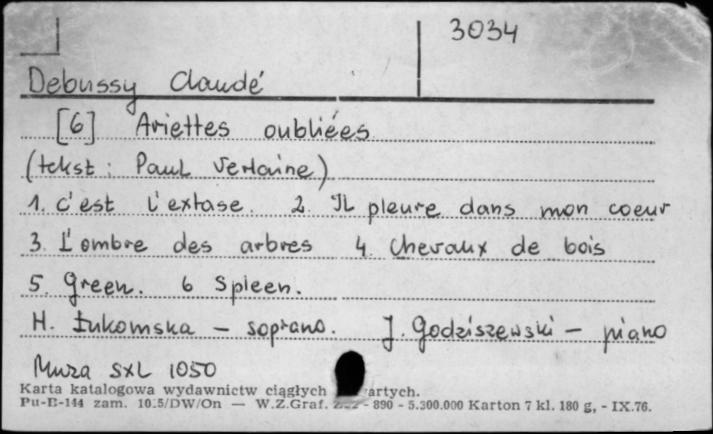 3034
Debussy Claudé
[6] Ariettes oubliées
(tekst: Paul Verlaine)
1. C'est l'extase. 2. Il pleure dans mon coeur
3. L'ombre des arbres 4. Chevaux de bois
5. Green. 6 Spleen.
H. Łukomska – soprano. J. Godziszewski – piano
Muza SXL 1050
Karta katalogowa wydawnictw ciągłych
Pu-B-144 zam. 10.5/DW/On — W.Z.Graf. - 890 - 5.300.000 Karton 7 kl. 180 g, - IX.76.